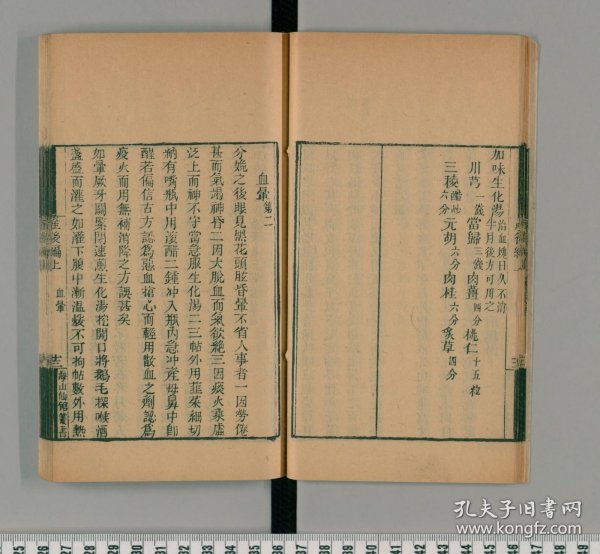 加味生化湯 治血塊日久不消半月後方可用之
川芎一錢 當歸三錢 肉薑四分 桃仁十五粒
三稜醋炒六分 元胡六分 肉桂六分 炙草四分
血暈第二
分娩之後眼見黑花頭眩昏暈不省人事者一因勞倦
甚而氣竭神昏二因大脫血而氣欲絕三因痰火乘虛
泛上而神不守當急服生化湯二三帖外用韮菜細切
納有嘴瓶中用滾醋二鍾冲入瓶內急冲產母鼻中卽
醒若偏信古方認爲惡血搶心而輕用散血之劑認爲
疫火而用無補消降之方誤甚矣
如暈厥牙關緊閉速煎生化湯挖開口將鵝毛探喉酒
盞盛而灌之如灌下腹中漸溫煖不可拘帖數外用熱
產後編上 血暈 海山仙館叢書
孔夫子旧书网
www.kongfz.com
25 26 27 28 29 30 31 32 33 34 35 36 37 38 39 40 41 42 43 44 45 46 47 48 49